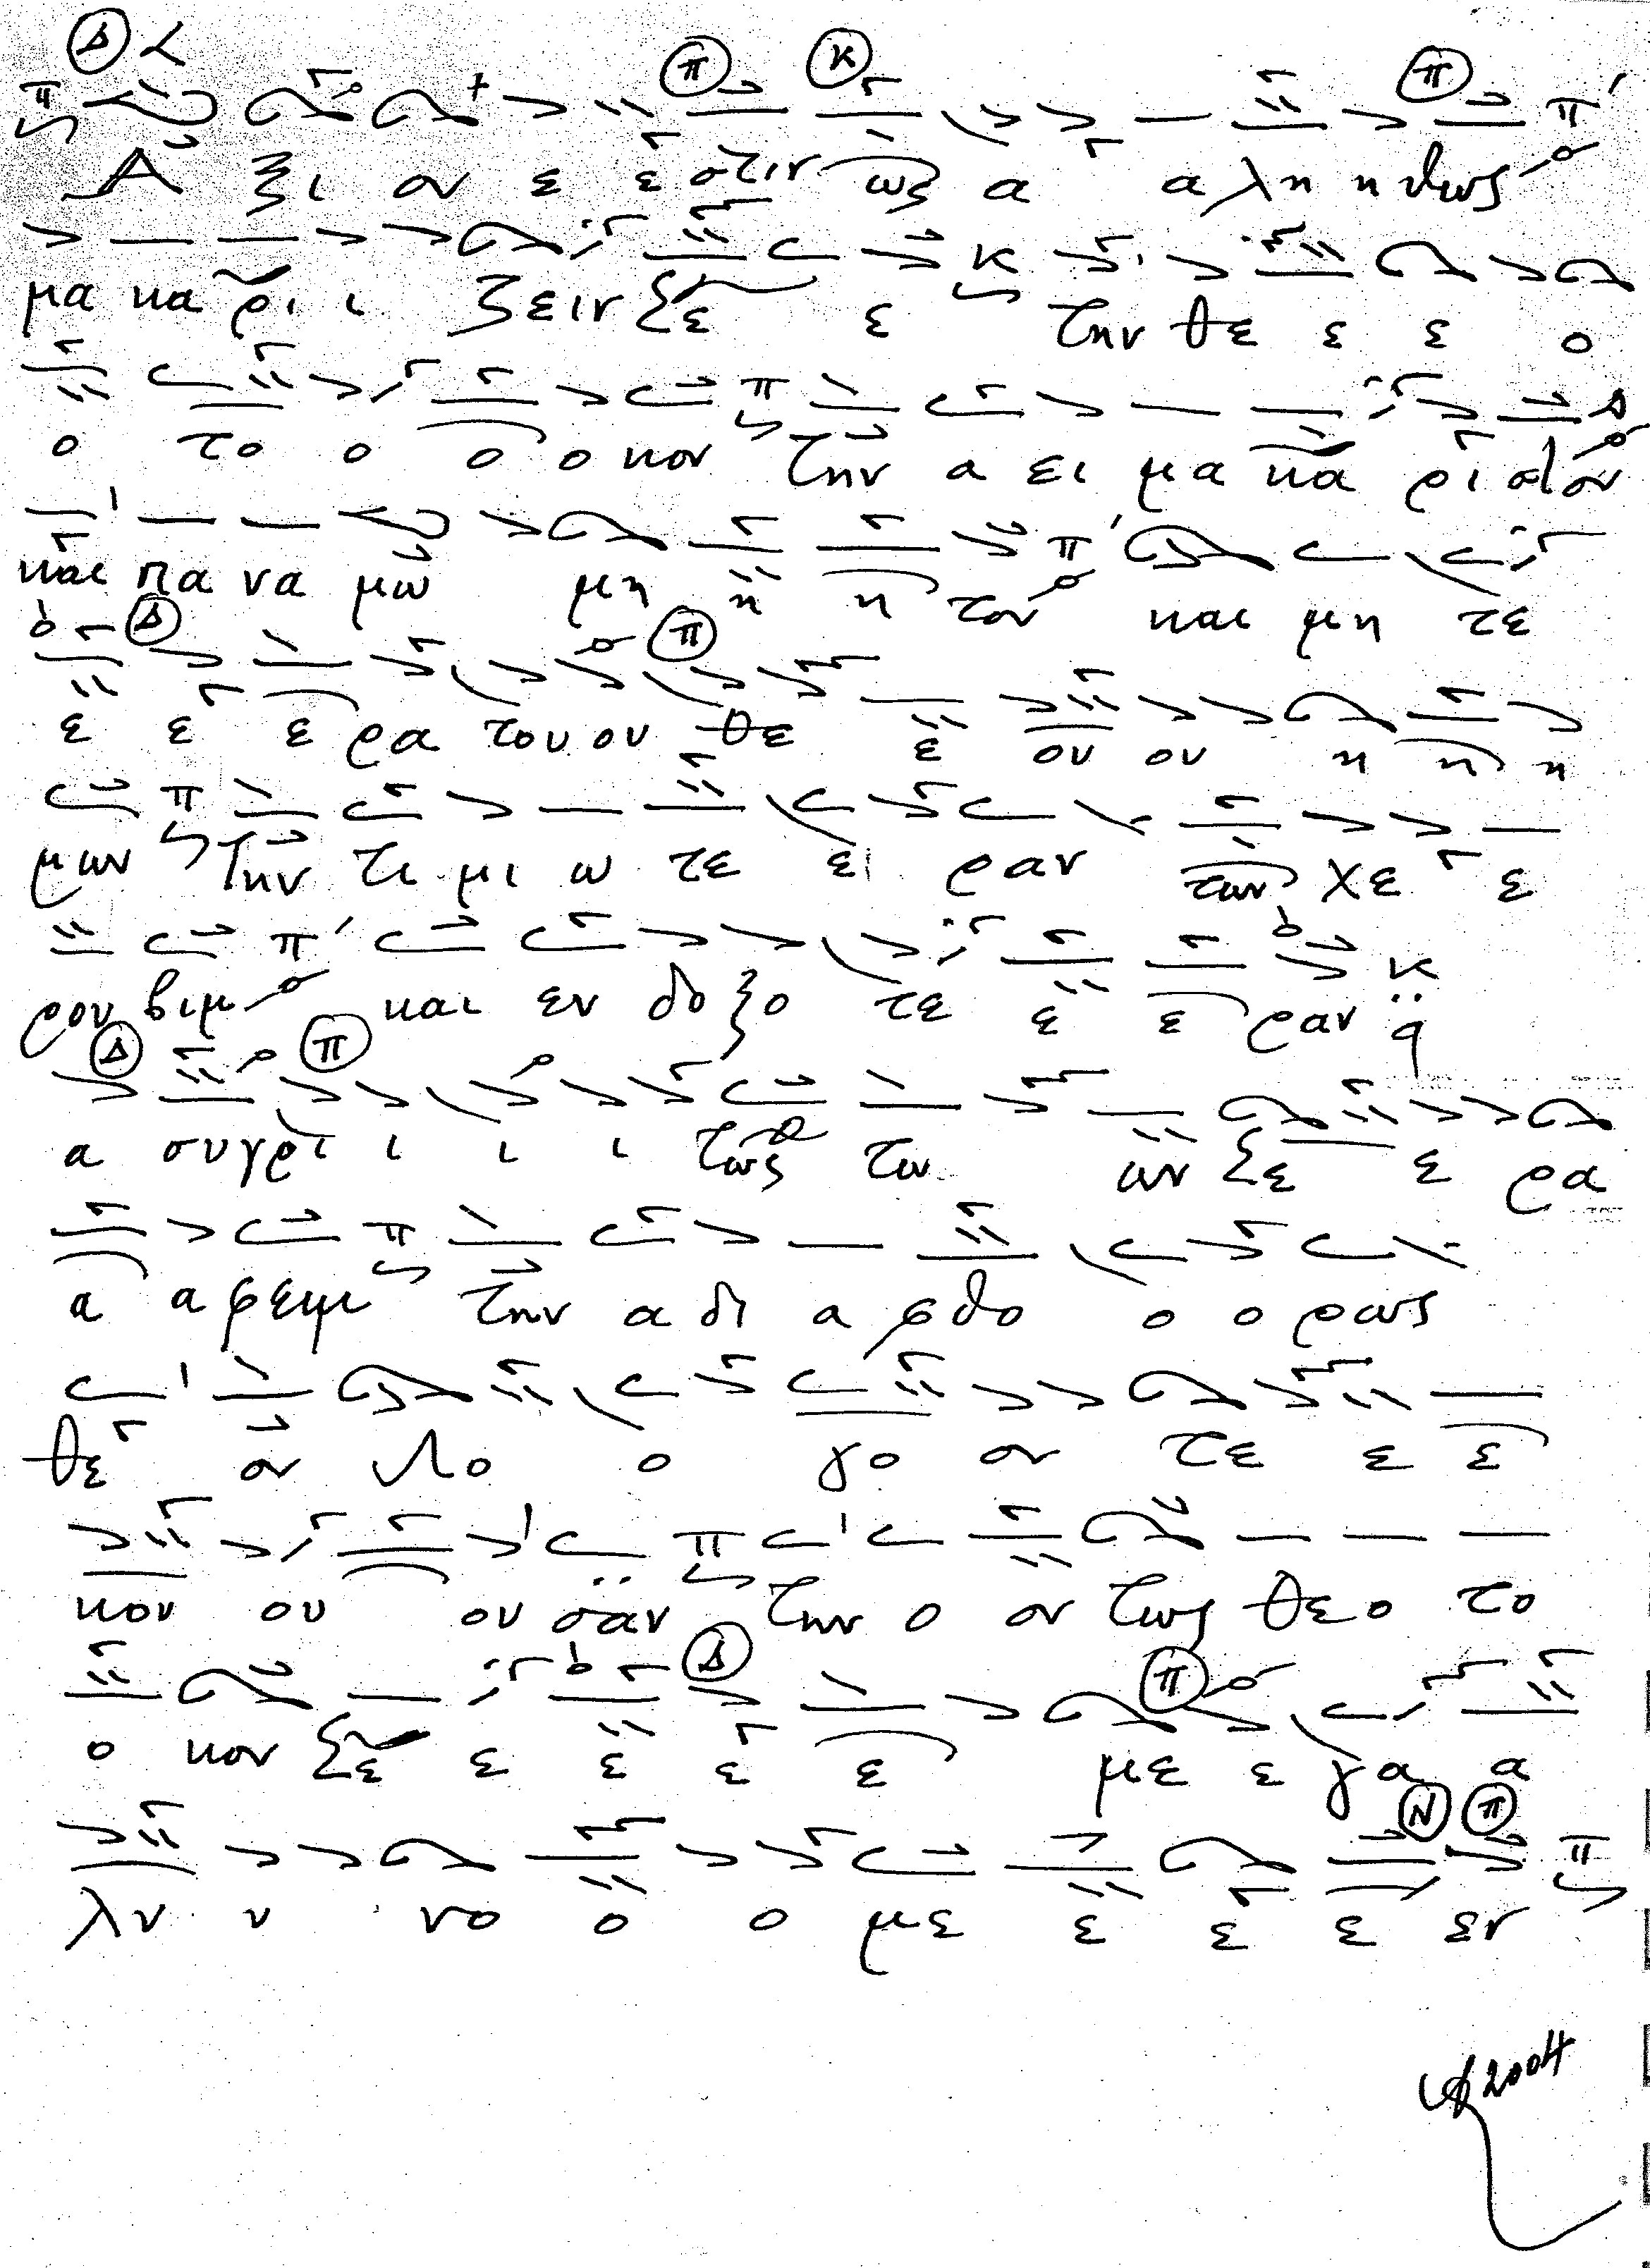 Α ξι ον ε ε στιν ως α α λη η θως
μα κα ρι ι ζειν σε ε την θε ε ε ο
ο το ο ο ο κον την α ει μα κα ρι στον
και πα να μω μη η η τον και μη τε
ε ε ε ρα του ου θε ε ου ου η η η
μων την τι μι ω τε ει ραν των χε ε
ρου βιμ και εν δο ξο τε ε ε ραν
α συγρι ι ι ι τως τω ων σε ε ρα
α α φειμ την α δι α φθο ο ο ρως
θε ον Λο ο γο ον τε ε ε
κου ου ου σαν την ο ον τως θεο το
ο κον σε ε ε ε ε με ε γα α
λυ υ νο ο ο με ε ε ε εν
2004